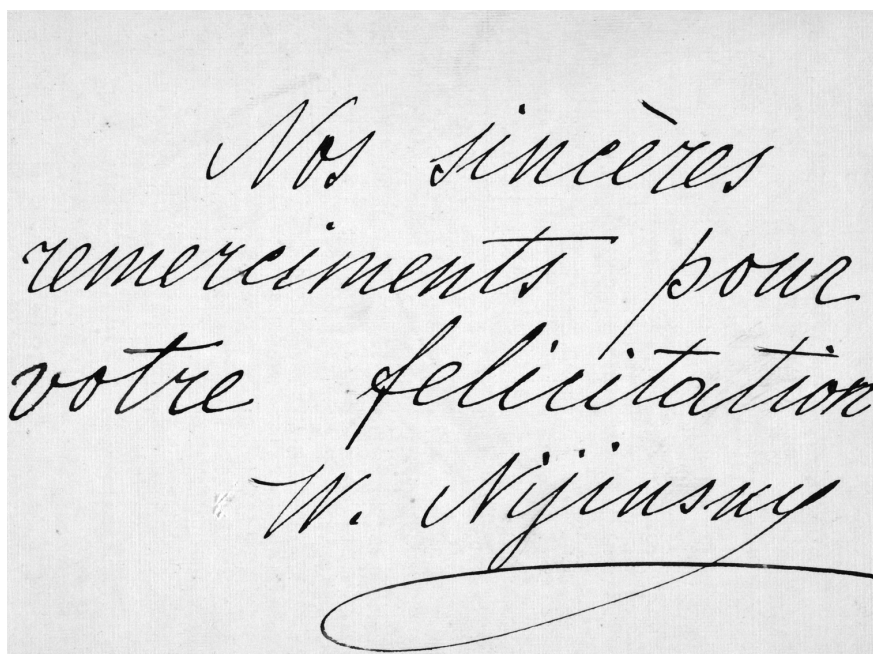 Nos sincères
remerciments pour
votre felicitation
W. Nijinsky